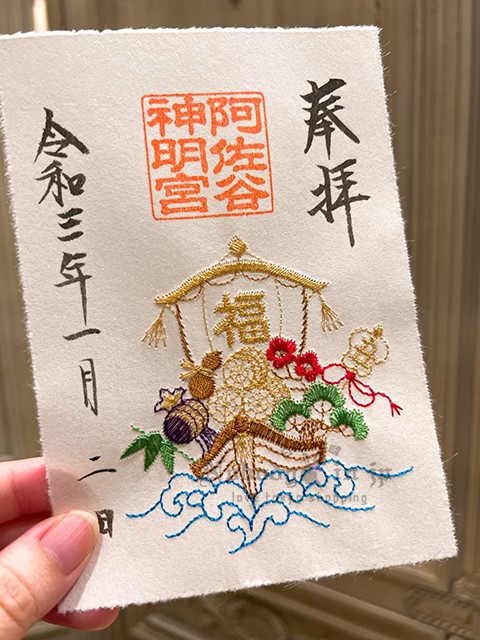 奉拝
阿佐谷
神明宮
福
令和三年一月二日
love tokyo shopping